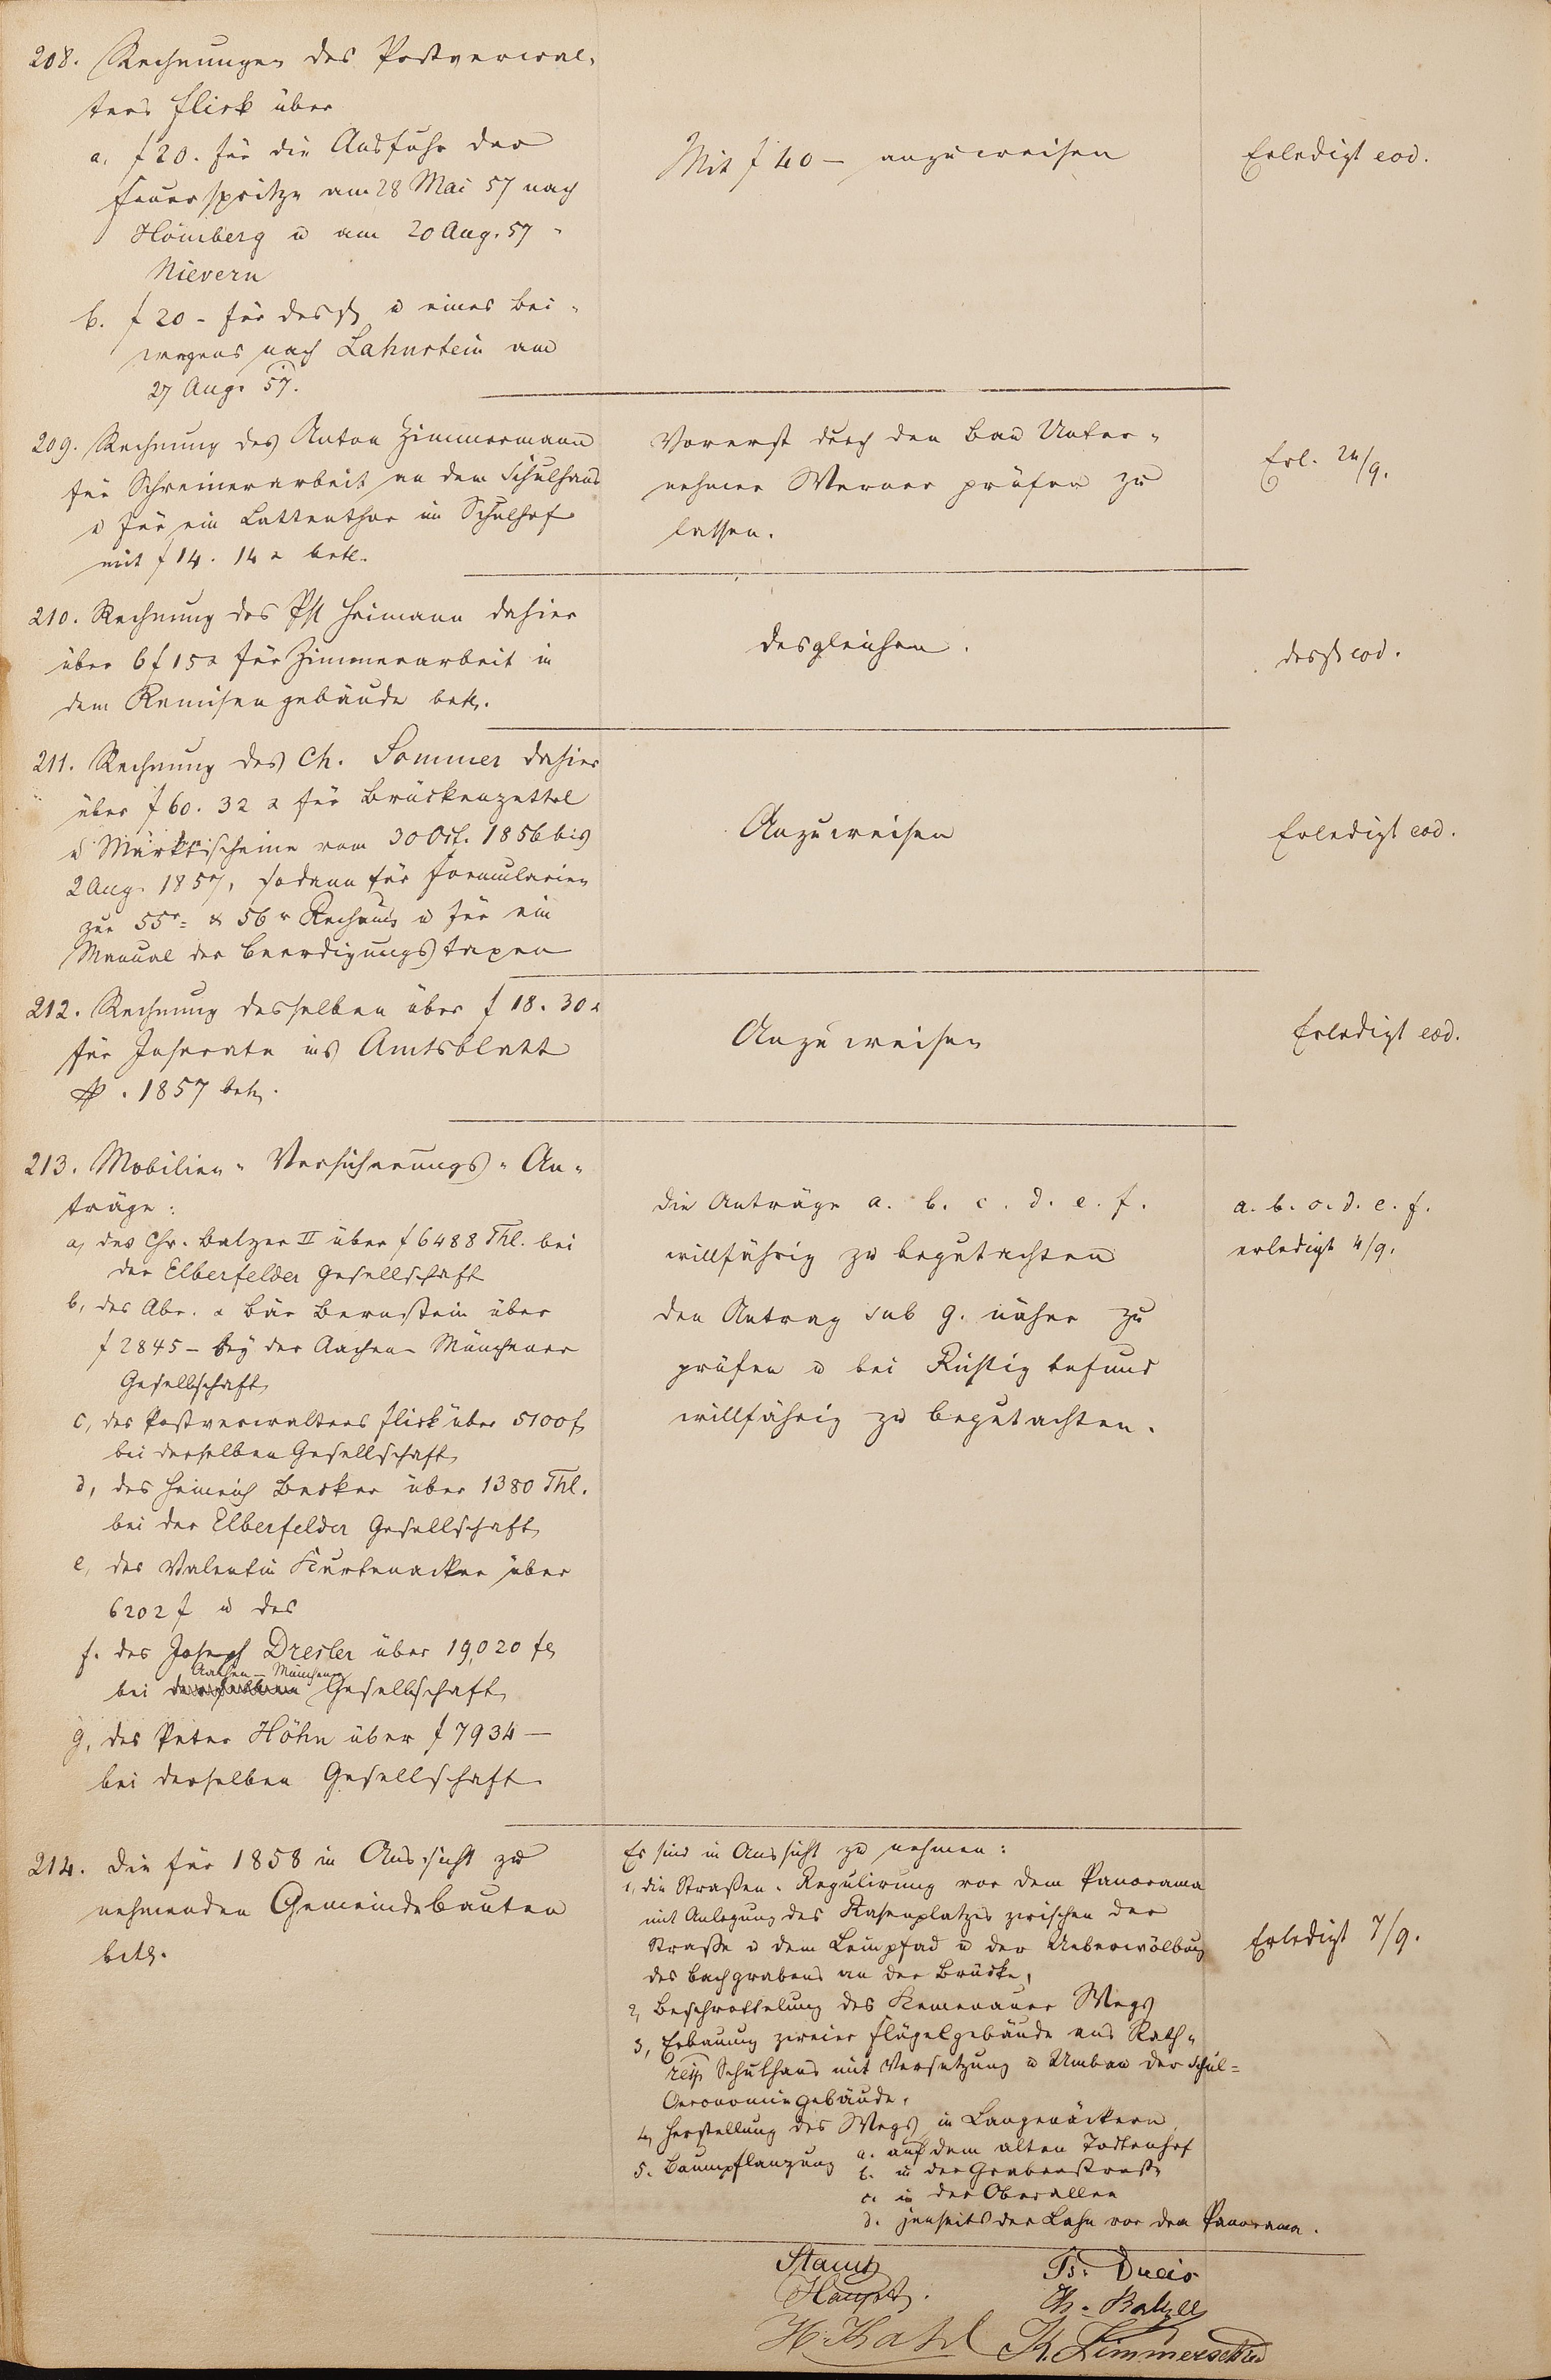 208. Rechnungen des Postverwal-
ters Flick über
a. f 20. für die Ausfuhr der
Feuerspritze am 28 Mai 57 nach
Hömberg u am 20 Aug. 57 "
Nievern
b. f 20 - für dessgl u eines Bei-
wagens nach Lahnstein am
27 Aug. 57.
Mit f 40 — anzuweisen
Erledigt eod.
209. Rechnung des Anton Zimmermann
für Schreinerarbeit an dem Schulhaus
u für ein Lattenthor im Schulhof
mit f 14. 14 x betr.
Vorerst durch den Bau Unter-
nehmer Werner prüfen zu
lassen.
Erl. 24/9.
210. Rechnung des Phl Heimann dahier
über 6 f 15 x für Zimmerarbeit in
dem Remisengebäude betr.
desgleichen.
dessgl eod.
211. Rechnung des Ch. Sommer dahier
über f 60. 32 x für Brückenzettel
u Marktscheine vom 30 Oct. 1856 bis
2 Aug. 1857, sodann für Formularien
zur 55r & 56r Rechnung u für ein
Manual der Beerdigungstaxen
Anzuweisen
Erledigt eod.
212. Rechnung desselben über f 18. 30 x
für Inserate ins Amtsblatt
pp. 1857 betr.
Anzuweisen
Erledigt eod.
213. Mobilien- Versicherungs- An-
träge:
a, des Chr. Balzer II über f 6488 Thl. bei
der Elberfelder Gesellschaft
b, des Abr. & Bär Bernstein über
f 2845 - bey der Aachen- Münchener
Gesellschaft
c, des Postverwalters Flick über 5100 f
bei derselben Gesellschaft
d, des Heinrich Becker über 1380 Thl.
bei der Elberfelder Gesellschaft
e, des Valentin Kurtenacker über
6202 f u des
f. des Joseph Dresler über 19,020 fl
Aachen - Münchener
bei derselben Gesellschaft
g, des Peter Höhn über f 7934 —
bei derselben Gesellschaft
Die Anträge a. b. c. d. e. f.
willfährig zu begutachten
den Antrag sub g. näher zu
prüfen u bei Richtigbefund
willfährig zu begutachten.
a. b. c. d. e. f.
erledigt 4/9.
214. Die für 1858 in Aussicht zu
nehmenden Gemeindebauten
betr.
Es sind in Aussicht zu nehmen:
1, die Straßen- Regulirung vor dem Panorama
mit Anlegung des Rasenplatzes zwischen der
Straße u dem Leinpfad u der Ueberwölbung
des Bachgrabens an der Brücke,
2, Beschrottelung des Kemenauer Wegs
3, Erbauung zweier Flügelgebäude ans Rath-
resp Schulhaus mit Versetzung u Umbau der Schul-
Oeconomiegebäude,
4, Herstellung des Wegs in Langenäckern
5. Baumpflanzung a. auf dem alten Todtenhof
b. in der Grabenstraße
c. in der Oberallee
d. jenseits der Lahn vor dem Panorama.
Erledigt 7/9.
Haupt.
Ch. Balzer
H. Kahl